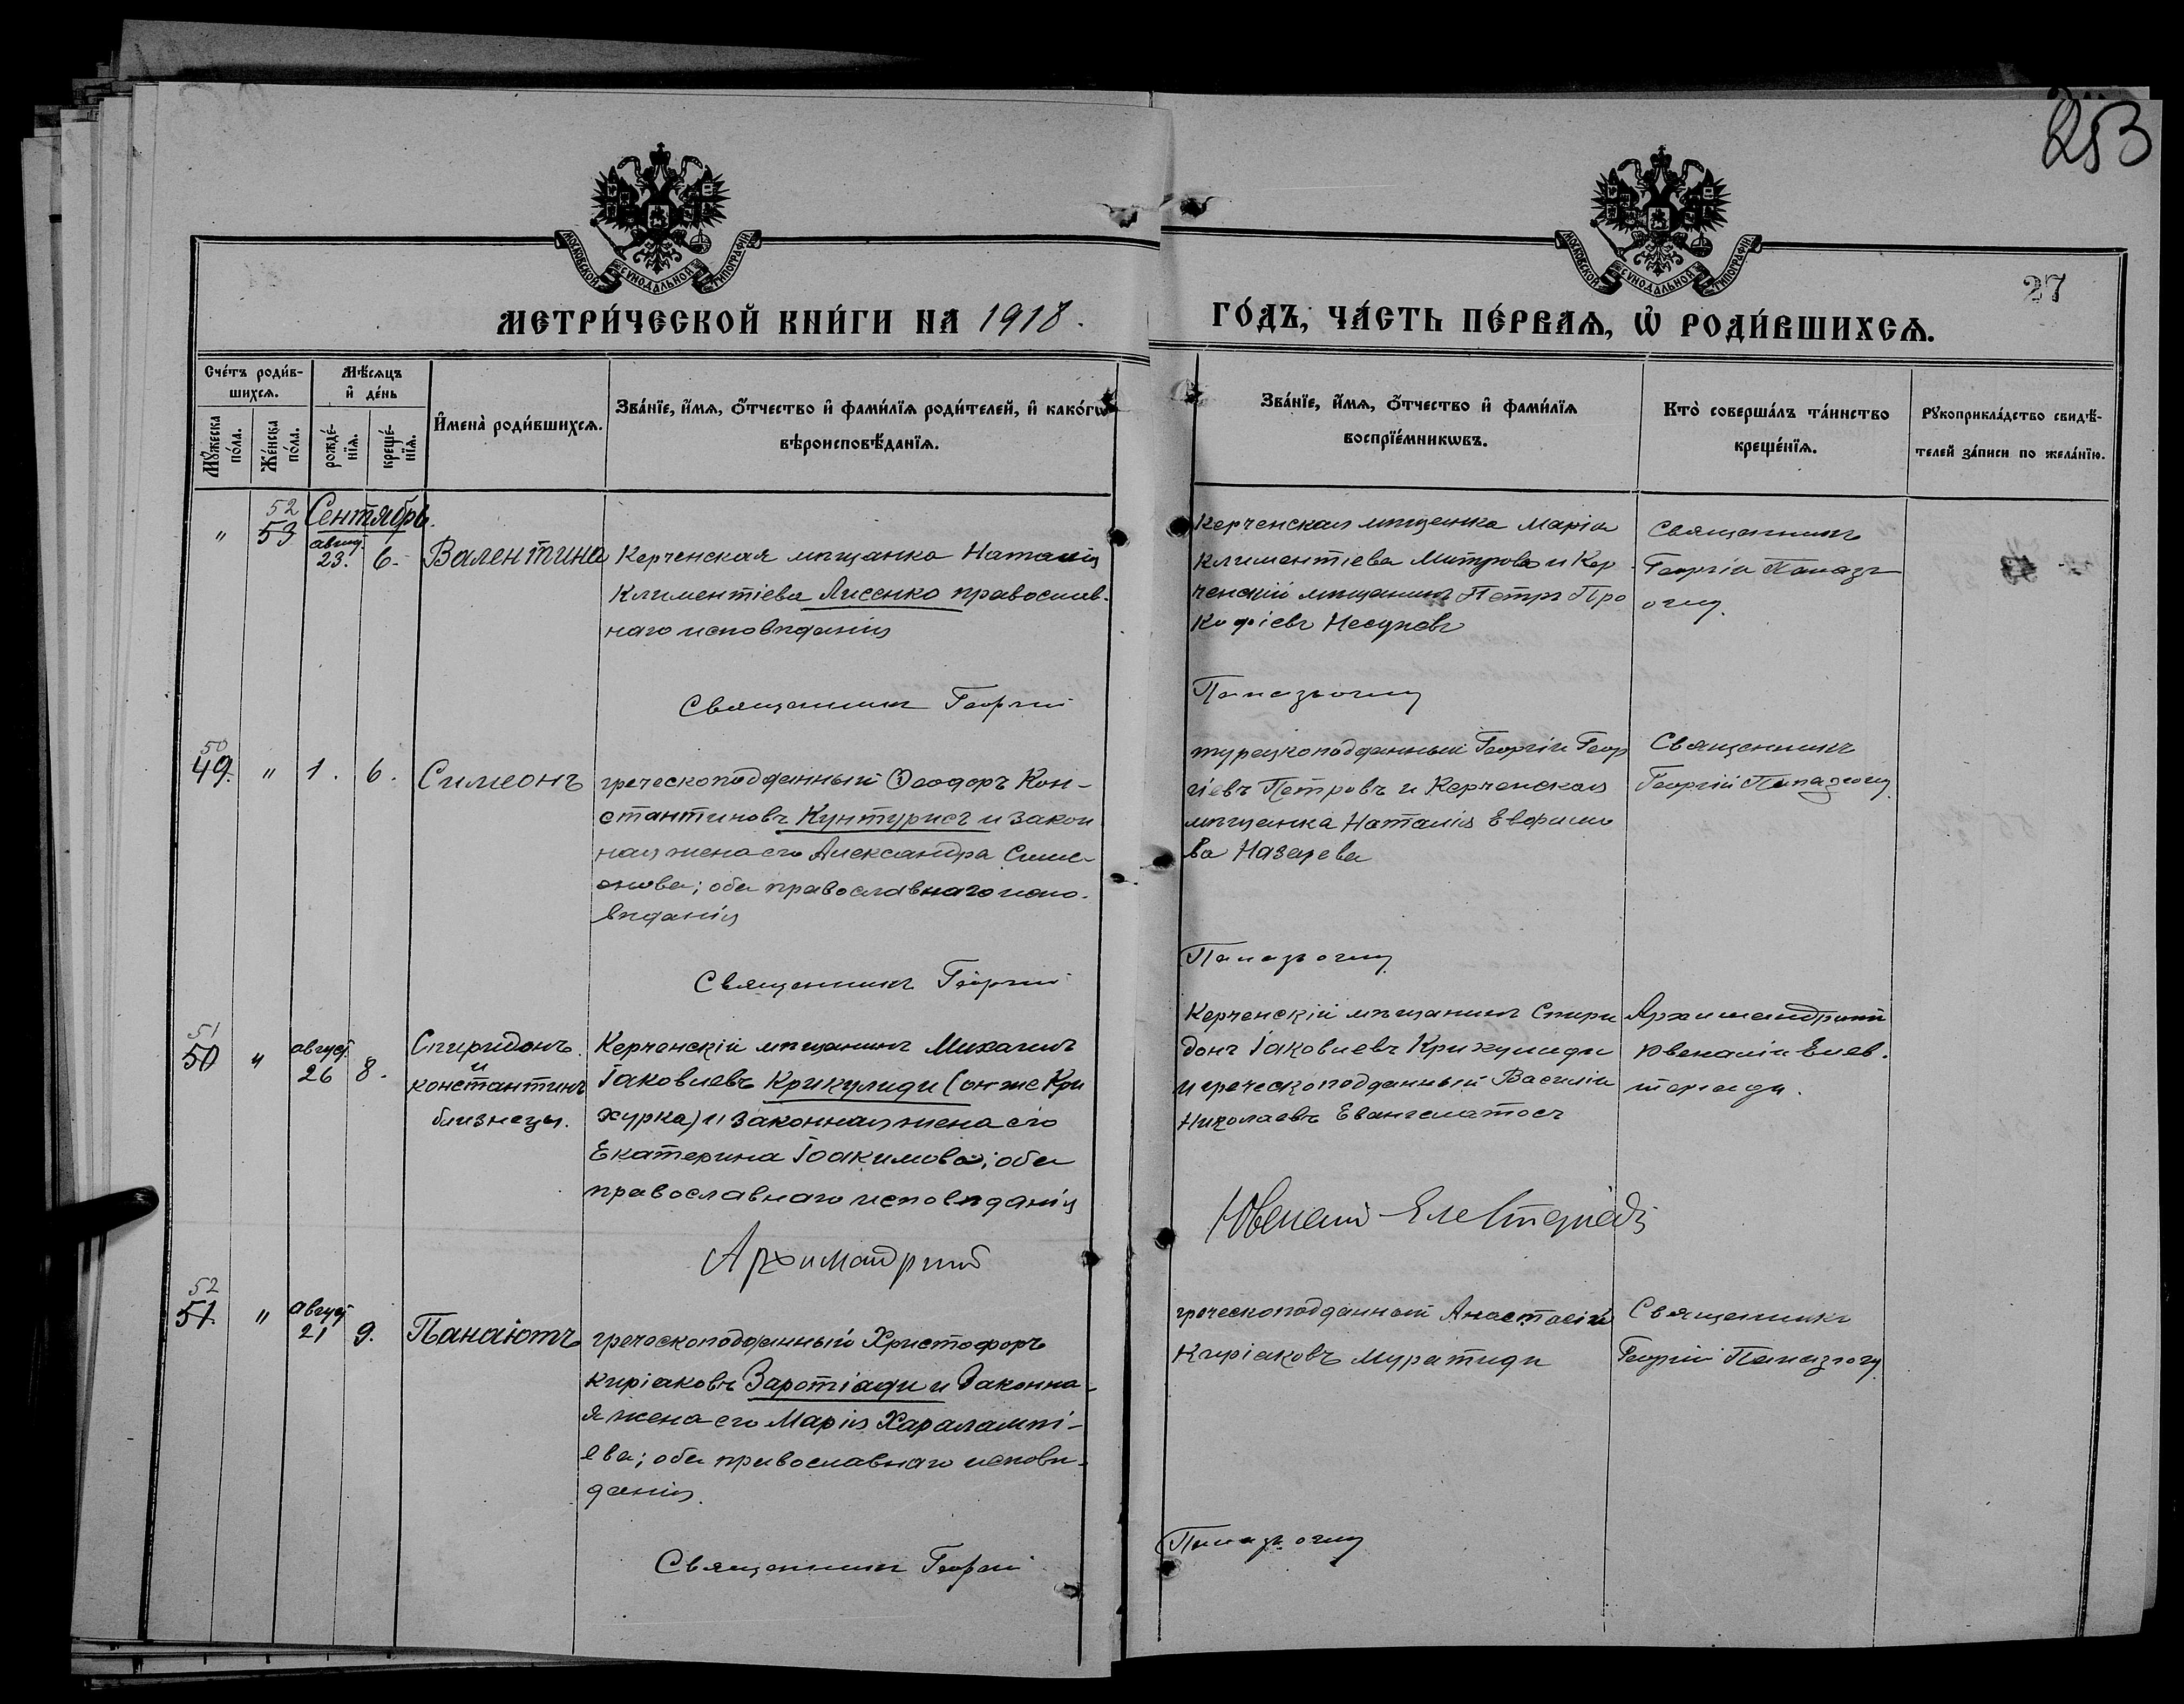 253
МОСКОВСКОЙ СѴНОДАЛЬНОЙ ТИПОГРАФІИ
МОСКОВСКОЙ СѴНОДАЛЬНОЙ ТИПОГРАФІИ
27
МЕТРИ́ЧЕСКОЙ КНИ́ГИ НА 1918.
ГО́ДЪ, ЧА́СТЬ ПЕ́РВАѦ, Ѡ҆ РОДИ́ВШИХСѦ.
Сче́тъ роди́в-
шихсѧ.
Мѣ́сѧцъ
и҆ де́нь
Мꙋ́жеска
по́ла.
Же́нска
по́ла.
рожде́-
нїѧ.
креще́-
нїѧ.
И҆мена̀ роди́вшихсѧ.
Зва́нїе, и҆́мѧ, ѻ҆́тчество и҆ фами́лїѧ роди́телей, и҆ како́гѡ
вѣроисповѣ́данїѧ.
Зва́нїе, и҆́мѧ, ѻ҆́тчество и҆ фами́лїѧ
воспрїе́мникѡвъ.
Кто̀ соверша́лъ та́инство
креще́нїѧ.
Рꙋкоприкла́дство свидѣ́-
телей за́писи по жела́нїю.
Сентябрь.
52
" 53
август
23. 6.
Валентина
Керченская мѣщанка Наталія
Климентіева Лисенко православ-
наго исповѣданія
Керченская мѣщанка Марія
Климентіева Митрова и Кер
ченскій мѣщанинъ Петръ Про
кофіевъ
Священникъ
Георгій Папазъ
оглу.
Священникъ Георгій
Папазъоглу
50
49. " 1. 6.
Симеонъ
греческоподданный Ѳеодоръ Кон-
стантиновъ Кунтурисъ и закон
ная жена его Александра Симе-
онова; оба православнаго испо-
вѣданія
турецкоподданный Георгій Геор
гіевъ Петровъ и Керченская
мѣщанка Наталія Евфимо
ва Назарева
Священникъ
Георгій Папазоглу
Священникъ Георгій
Папазъоглу
51
50 "
август
26 8.
Спиридонъ
и
Константинъ
близнецы.
Керченскій мѣщанинъ Михаилъ
Іаковлевъ Крикулиди (онже Кри
хурка) и законная жена его
Екатерина Іоакимова; оба
православнаго исповѣданія
Керченскій мѣщанинъ Спири
донъ Іаковлевъ Крикулиди
и греческоподданный Василій
Николаевъ Евангелатосъ
Архимандритъ
Ювеналій Елев-
теріади.
Архимандритъ
Ювеналій Елевтеріади
52
51. "
август
21 9.
Панаіотъ
греческоподданный Христофоръ
Киріаковъ Заротіади и Законна-
я жена его Марія Харалампі-
ева; оба православнаго исповѣ-
данія.
греческоподданный Анастасій
Киріаковъ Муратиди
Священникъ
Георгій Папазоглу
Священникъ Георгій
Папазъоглу